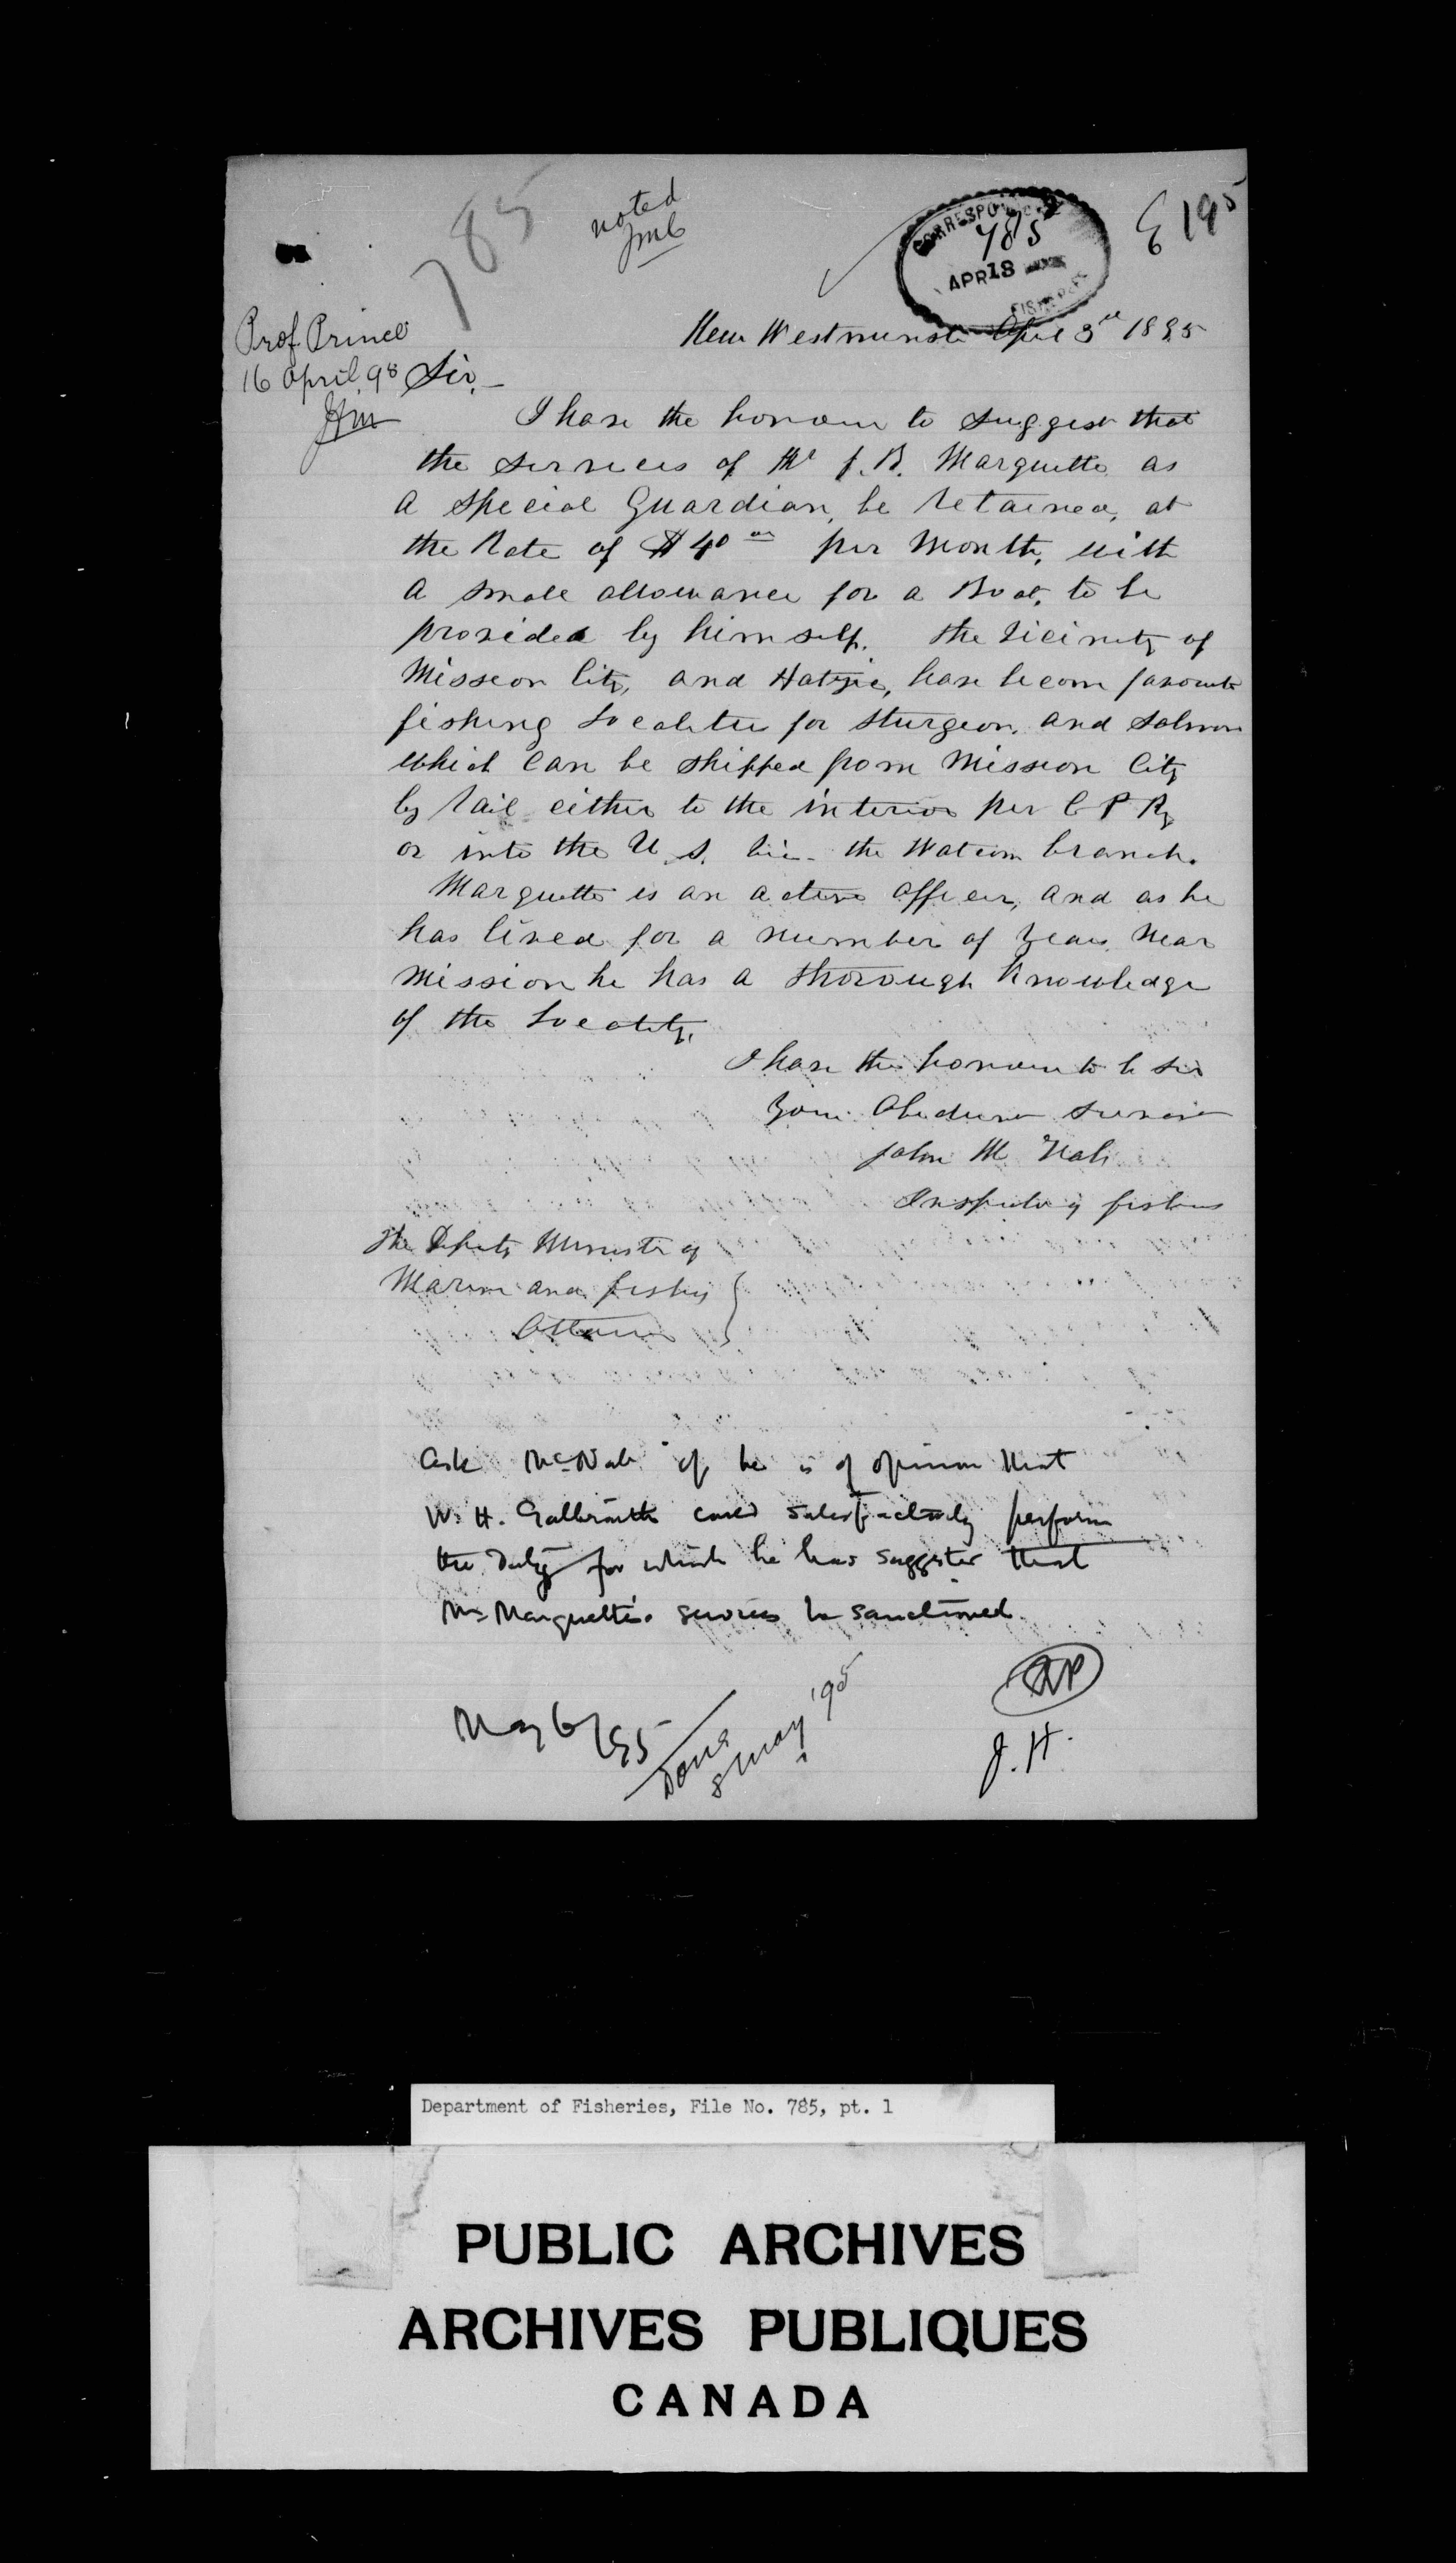 785
noted
JMC
CORRESPONDENCE
785
APR 18
E 195
New Westminster April 3rd 1895
Prof. Prince
16 April 98
Sir,
I have the honour to suggest that
the services of Mr J. B. Marquette as
a special Guardian, be retained, at
the Rate of $40 00 per Month, with
a small allowance for a Boat, to be
provided by himself. The vicinity of
Mission City, and Hatzic, have become favourite
fishing Localities for Sturgeon, and Salmon
which can be shipped from Mission City
by rail either to the interior per C P Ry
or into the U.S. via the Watcom branch.
Marquette is an active officer, and as he
has lived for a number of years near
Mission he has a thorough knowledge
of the Locality.
I have the honour to be Sir
Your Obedient Servant
John McNab
Inspector of fisheries
The Deputy Minister of
Marine and fisheries
Ottawa
Ask McNab if he is of opinion that
W. H. Galbraith could satisfactorily perform
the duty for which he has suggested that
Mr Marquette's services be sanctioned
May 6/95
Done
8 May '95
J. H.
Department of Fisheries, File No. 785, pt. 1
PUBLIC ARCHIVES
ARCHIVES PUBLIQUES
CANADA